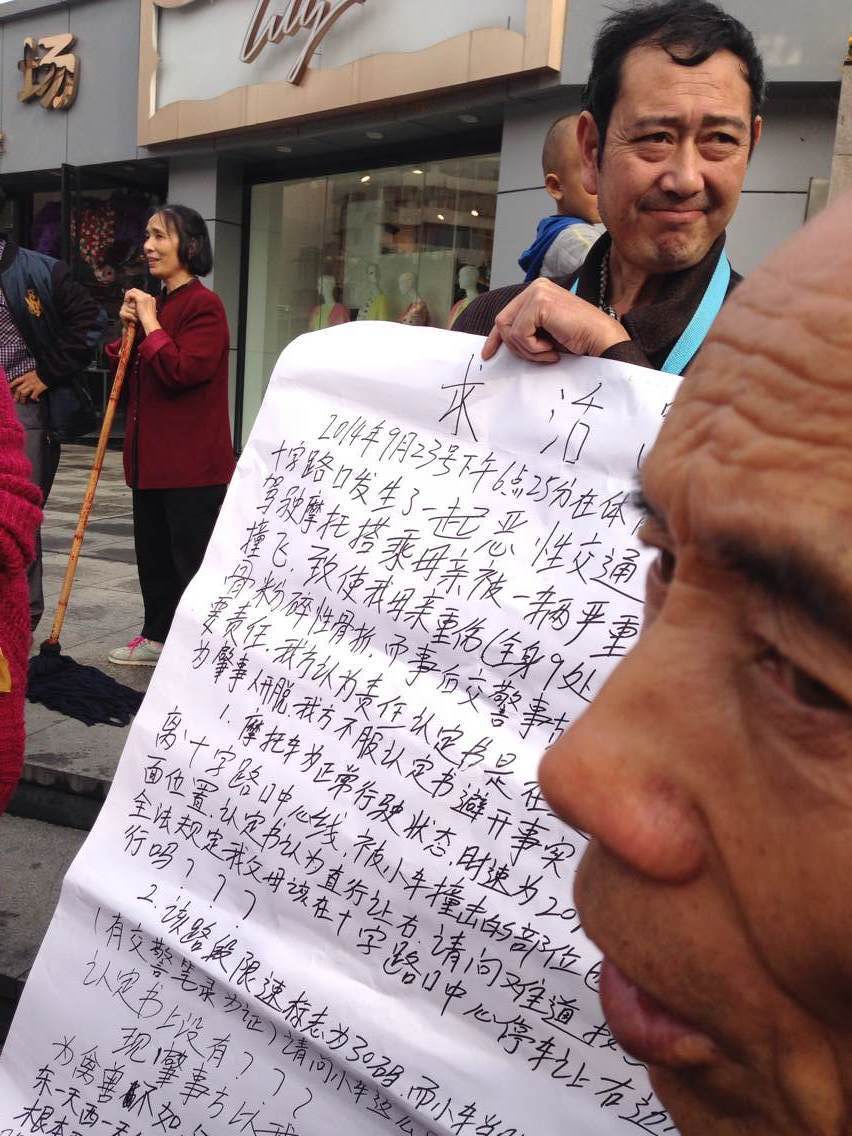 场
Lily
求 活
2014年9月23号下午6点25分在体
十字路口发生了一起恶性交通
驾驶摩托搭乘母亲被一辆严重
撞飞,致使我母亲重伤(全身9处
骨粉碎性骨折,而事后交警事方
要责任.我方认为责任认定书是在
为肇事人开脱.我方不服认定书避开事实
1.摩托车为正常行驶状态,时速为20
离十字路口中心线,被小车撞击的部位
面位置.认定书认为直行让右.请问难道
全法规定我父母该在十字路口中心停车让右边
行吗???
2.该路段限速标志为30码,而小车
(有交警笔录为证)请问小车这么
认定书上没有???
现肇事方以
为禽兽不如
东一天西一
根本